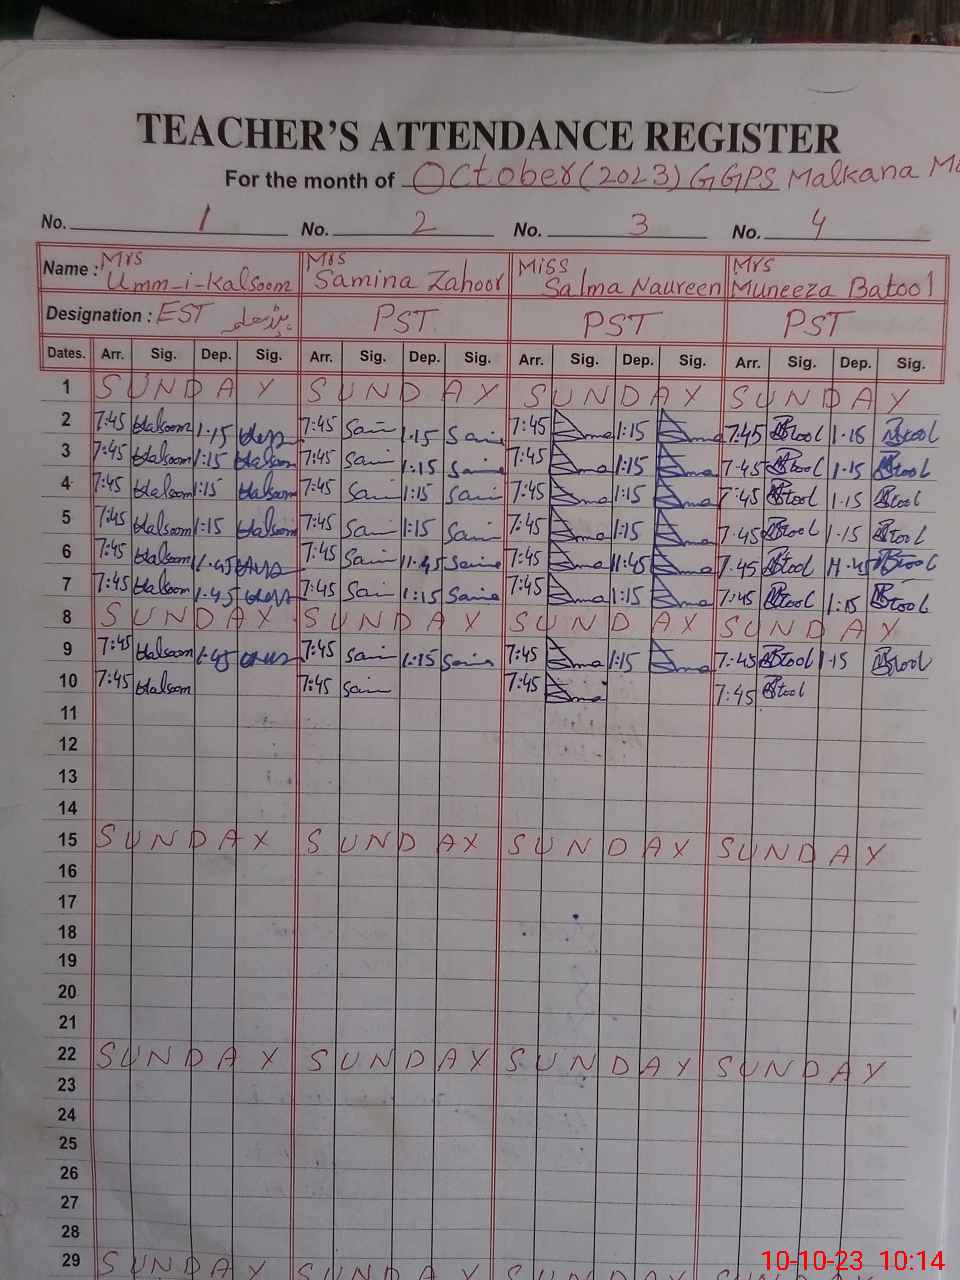 TEACHER'S ATTENDANCE REGISTER
For the month of October (2023) GGPS Malkana
No. 1 No. 2 No. 3 No. 4
Name : Mrs Umm-i-Kalsoom Mrs Samina Zahoor Miss Salma Naureen Mrs Muneeza Batool
Designation : EST PST PST PST
Dates. Arr. Sig. Dep. Sig. Arr. Sig. Dep. Sig. Arr. Sig. Dep. Sig. Arr. Sig. Dep. Sig.
1 SUNDAY SUNDAY SUNDAY SUNDAY
2 7:45 Kalsoom 1:15 7:45 1:15 7:45 1:15 7:45 1:15
3 7:45 Kalsoom 1:15 Kalsoom 7:45 1:15 7:45 1:15 7:45 1:15
4 7:45 Kalsoom 1:15 Kalsoom 7:45 1:15 7:45 1:15 7:45 1:15
5 7:45 Kalsoom 1:15 Kalsoom 7:45 1:15 7:45 1:15 7:45 1:15
6 7:45 Kalsoom 7:45 11:45 7:45 11:45 7:45 11:45
7 7:45 Kalsoom 1:45 7:45 1:15 7:45 1:15 7:45 1:15
8 SUNDAY SUNDAY SUNDAY SUNDAY
9 7:45 Kalsoom 1:45 7:45 1:15 7:45 1:15 7:45 1:15
10 7:45 Kalsoom 7:45 7:45 7:45
11
12
13
14
15 SUNDAY SUNDAY SUNDAY SUNDAY
16
17
18
19
20
21
22 SUNDAY SUNDAY SUNDAY SUNDAY
23
24
25
26
27
28
29 SUNDAY SUNDAY SUNDAY SUNDAY
10-10-23 10:14